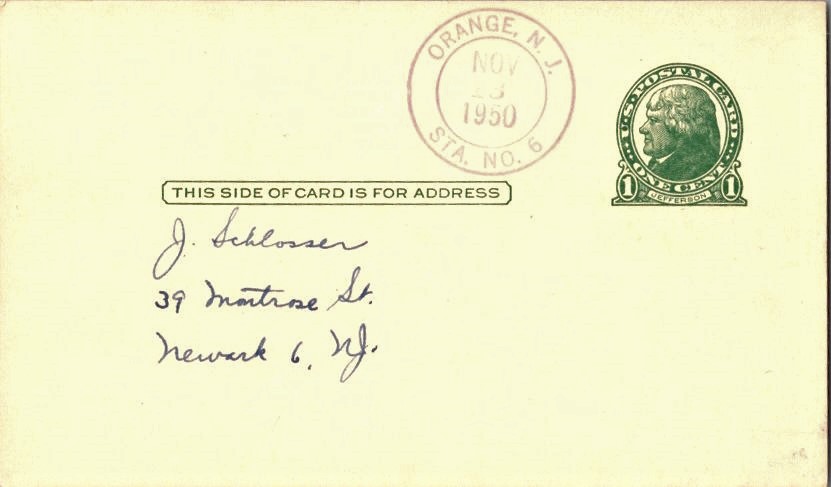 ORANGE, N. J.
NOV
23
1950
STA. NO. 6
U.S. POSTAL CARD
ONE CENT
1 JEFFERSON 1
THIS SIDE OF CARD IS FOR ADDRESS
J. Schlosser
39 Montrose St.
Newark 6, NJ.